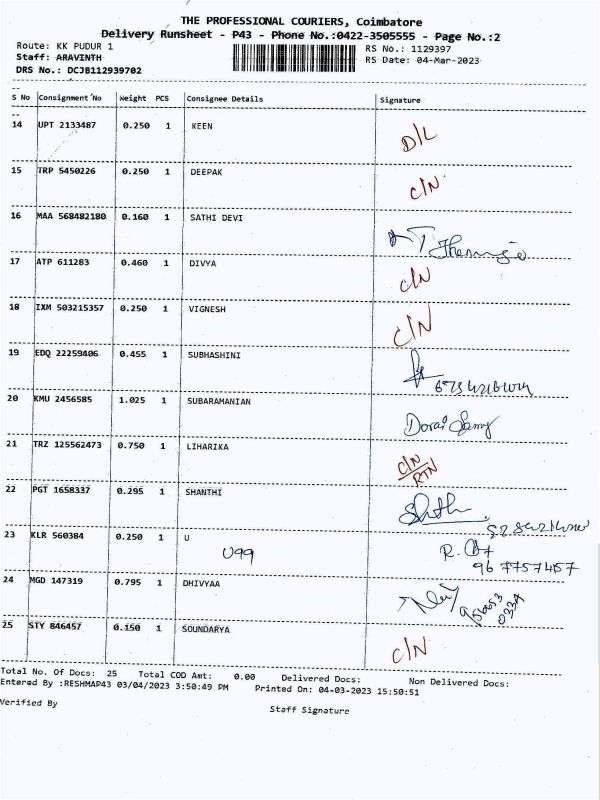 THE PROFESSIONAL COURIERS, Coimbatore
Delivery Runsheet - P43 - Phone No.:0422-3505555 - Page No.:2
Route: KK PUDUR 1
RS No.: 1129397
Staff: ARAVINTH
RS Date: 04-Mar-2023
DRS No.: DCJB112939702
S No Consignment No Weight PCS Consignee Details Signature
14 UPT 2133487 0.250 1 KEEN D/L
15 TRP 5450226 0.250 1 DEEPAK C/N
16 MAA 568482180 0.160 1 SATHI DEVI
17 ATP 611283 0.460 1 DIVYA C/N
18 IXM 503215357 0.250 1 VIGNESH C/N
19 EDQ 22259406 0.455 1 SUBHASHINI
20 KMU 2456585 1.025 1 SUBARAMANIAN Dorai Samy
21 TRZ 125562473 0.750 1 LIHARIKA C/N
RTN
22 PGT 1658337 0.295 1 SHANTHI
23 KLR 560384 0.250 1 U
U99
24 MGD 147319 0.795 1 DHIVYAA
25 STY 846457 0.150 1 SOUNDARYA C/N
Total No. Of Docs: 25 Total COD Amt: 0.00 Delivered Docs: Non Delivered Docs:
Entered By :RESHMAP43 03/04/2023 3:50:49 PM Printed On: 04-03-2023 15:50:51
Verified By
Staff Signature